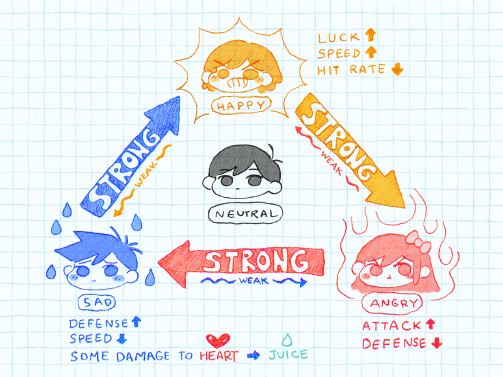 LUCK ↑
SPEED ↑
HIT RATE ↓
HAPPY
STRONG
WEAK
STRONG
WEAK
NEUTRAL
STRONG
WEAK
SAD
DEFENSE ↑
SPEED ↓
SOME DAMAGE TO HEART → JUICE
ANGRY
ATTACK ↑
DEFENSE ↓